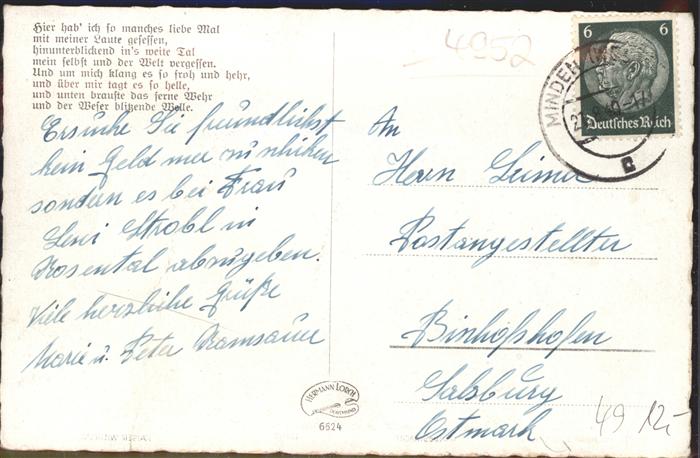 Hier hab' ich so manches liebe Mal
mit meiner Laute gesessen,
hinunterblickend in's weite Tal
mein selbst und der Welt vergessen.
Und um mich klang es so froh und hehr,
und über mir tagt es so helle,
und unten brauste das ferne Wehr
und der Weser blitzende Welle.
Ersuche Sie freundlichst
kein Geld mer zu schiken
sondern es bei Frau
Leni Strobl in
Rosental abzugeben.
Viele herzliche Grüße
Marie u. Peter Ramsauer
4952
6 6
Deutsches Reich
MINDEN
An
Herrn
Postangestellter
Bischofshofen
Salzburg
Ostmark
HERMANN LORCH
DORTMUND
6624
49 12.-